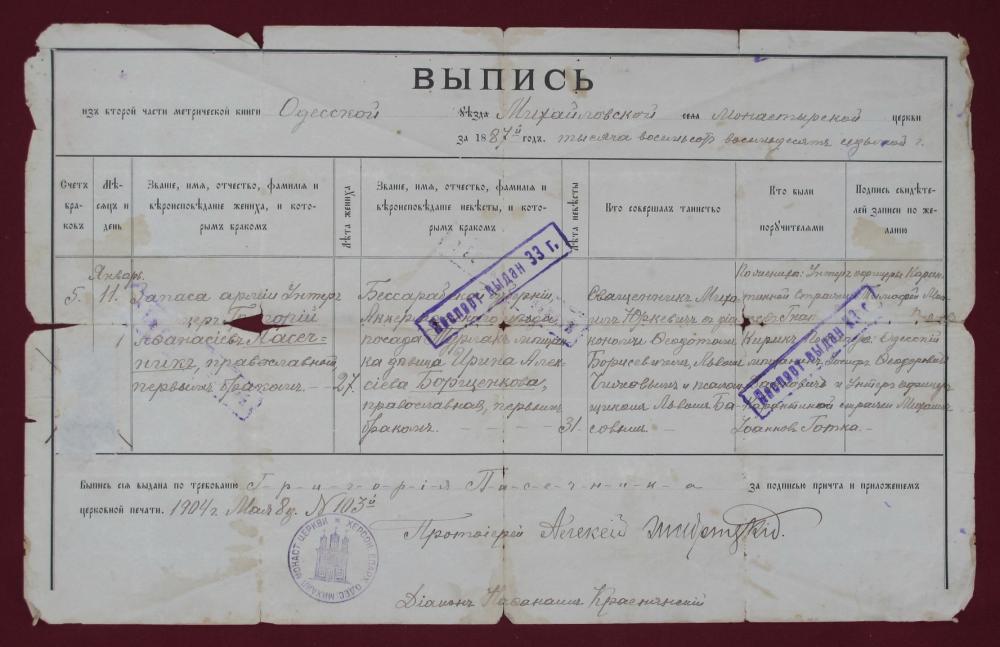 ВЫПИСЬ
изъ второй части метрической книги Одесской уѣзда Михайловской села Монастырской церкви
за 1887й годъ. тысяча восемьсотъ восемьдесятъ седьмой г.
Счетъ браковъ
Мѣсяцъ и день
Званіе, имя, отчество, фамилія и вѣроисповѣданіе жениха, и которымъ бракомъ
Лѣта жениха
Званіе, имя, отчество, фамилія и вѣроисповѣданіе невѣсты, и которымъ бракомъ
Лѣта невѣсты
Кто совершалъ таинство
Кто были поручителями
Подпись свидѣтелей записи по желанію
Январь.
5. 11.
Запаса арміи Унтеръ
Григорій
Аѳанасіевъ Пасечникъ, православный,
первымъ бракомъ. –
27.
Бессараб губерніи,
Аккерманского уѣзда
посада
дѣвица Ирина Алексіева Борщенкова,
православная, первымъ
бракомъ.
31.
Священникъ Михаилъ Юркевичъ съ діакономъ Ѳеодотомъ
Борисевичемъ,
и псаломщикомъ Львомъ
По женихѣ: Унтеръ офицеры Карантинной стражи Тимофей
Кирикъ
Одесскій
мѣщанинъ Іосифъ Ѳеодоровъ
и Унтеръ офицеръ
Карантинной стражи
Іоанновъ
Паспорт выдан 33 г.
Паспорт выдан
Выпись сія выдана по требованію Григорія Пасечника за подписью причта и приложеніемъ
церковной печати. 1904 г. Мая 8 д. N 103й
Протоіерей Алексій
Діаконъ Краснянскій
ХЕРСОН. ЕПАРХ. ОДЕС. МИХАИЛ. МОНАСТ. ЦЕРКВИ